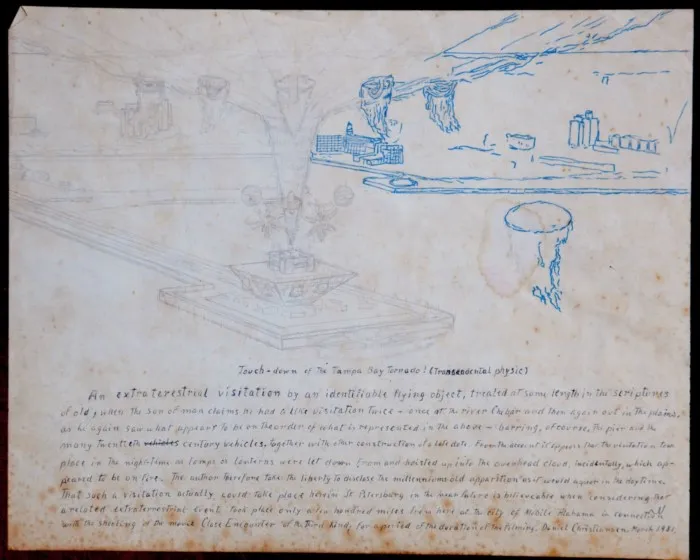 Touch-down of the Tampa Bay Tornado! (Transendental physic)
An extraterestreal visitation by an identifiable flying object, treated at some length in the scriptones
of old, when the son of man claims he had a like visitation twice – once at the river Chebar and then again out in the plains.
as he again saw what appears to be on the order of what is represented in the above – barring, of course, the pier and the
many twentieth vehicles century vehicles, together with other construction of a late date. From the account it appears that the visitation took
place in the night-time as lamps or lanterns were let down from and hoisted up into the overhead cloud, incidentally, which ap-
peared to be on fire. The author therefore take the liberty to disclose the milleniums old apparition as it would appear in the daytime.
That such a visitation actually could take place herein St. Petersburg in the near future is believeable when considering that
a related extraterrestrial event took place only a hundred miles from here at the city of Mobile Alabama in connection
with the shooting of the movie Close Encounter of the third kind; for a period of the duration of the filming. Daniel Christiansen. March 1981.